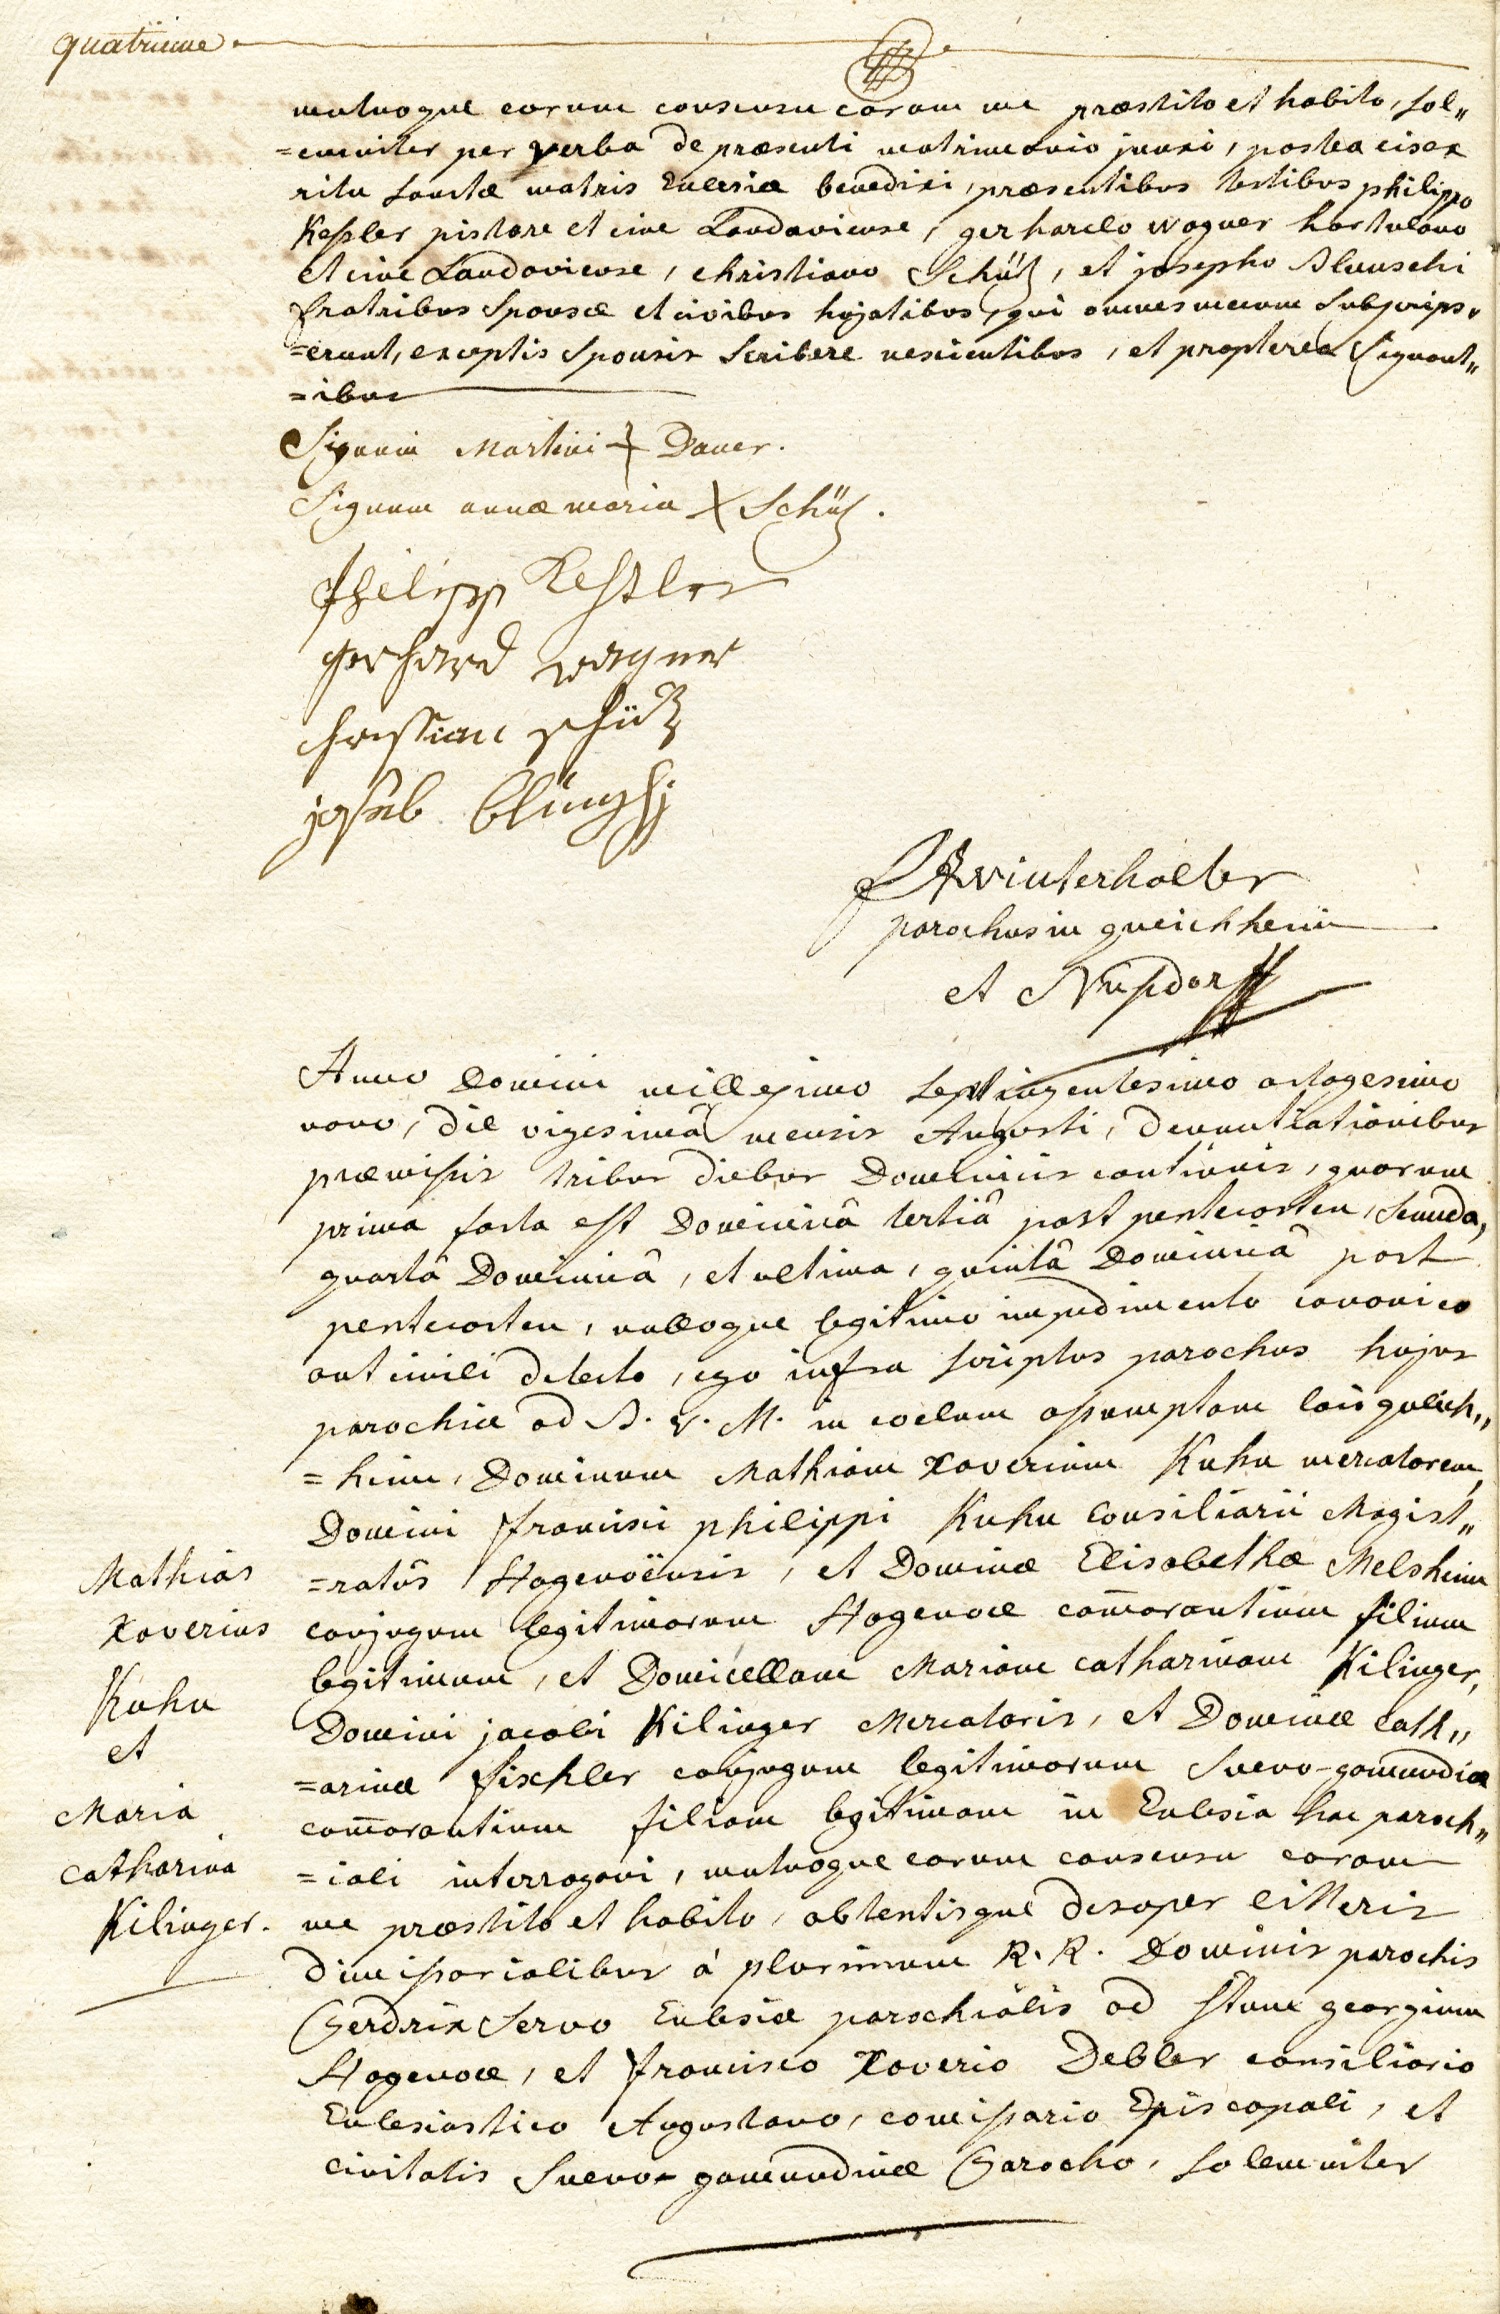 quatrieme
mutuoque eorum consensu coram me præstito et habito, sol„
=emniter per verba de præsenti matrimonio junxi, postea eis ex
ritu Sanctæ matris Ecclesiæ benedixi, præsentibus testibus philippo
Keßler pistore et cive Landaviense, gerhardo wagner hortulano
et cive Landaviense, christiano Schütz, et josepho Blunschi
fratribus Sponsæ et civibus hujatibus, qui omnes mecum Subscrips„
=erunt, exceptis Sponsis Scribere nescientibus, et propterea Signant„
=ibus
Signum Martini + Dauer.
Signum annæ maria X Schütz.
Philipp Keßler
gerhard wagner
christian schütz
joseb
winterhalter
parochus in queichheim
et Nußdorff
Anno Domini millesimo Septingentesimo octogesimo
nono, die vigesimâ mensis Augusti, denuntiationibus
præmissis tribus diebus Dominicis continuis, quarum
prima facta est Dominicâ tertiâ post pentecosten, Secunda,
quartâ Dominicâ, et ultima, quintâ Dominicâ post
pentecosten, nulloque legitimo impedimento canonico
aut civili detecto, ego infra scriptus parochus hujus
parochiæ ad B. v. M. in coelum assumptam loci queich„
=heim, Dominum Mathiam Xaverium Kuhn mercatorem,
Domini francisci philippi Kuhn Consiliarii Magist„
=ratûs Hagenoënsis, et Dominæ Elisabethæ Melsheim
conjugum legitimorum Hagenoæ com̄orantium filium
legitimum, et Domicellam Mariam catharinam Kilinger,
Domini jacobi Kilinger Mercatoris, et Dominæ Cath„
=arinæ fischler conjugum legitimorum Suevo-gamundiæ
com̄orantium filiam legitimam in Ecclesia hac paroch„
=iali interrogavi, mutuoque eorum consensu coram
me præstito et habito, obtentisque desuper litteris
dimissorialibus à plurimum R. R. Dominis parochis
Gerdrix Servo Ecclesiæ parochialis ad Stum georgium
Hagenoæ, et francisco Xaverio Debler consiliario
Ecclesiastico Augustano, comissario Episcopali, et
civitatis Suevo-gamundinæ Parocho, solemniter
Mathias
Xaverius
Kuhn
et
Maria
Catharina
Kilinger.